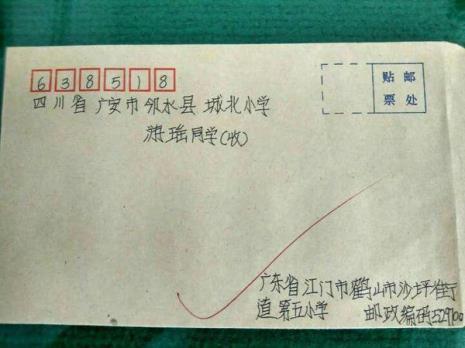 638518
贴 邮
票 处
四川省广安市邻水县城北小学
瑶同学(收)
广东省江门市鹤山市沙坪街
道第五小学 邮政编码529700